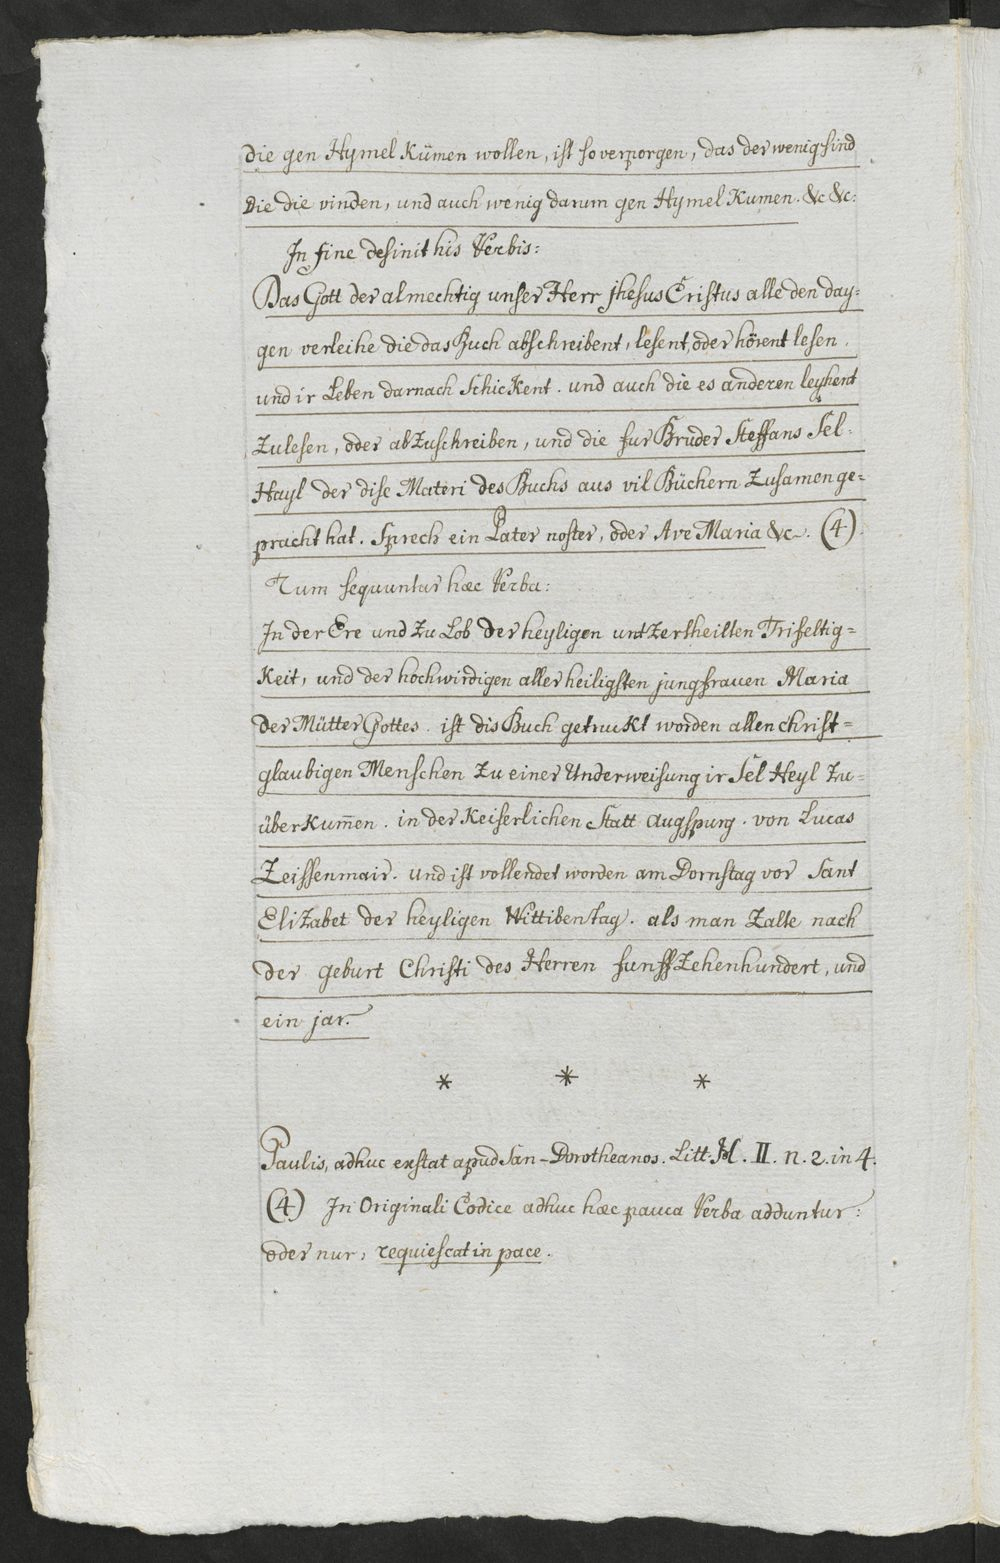 die gen Hymel Kümen wollen, ist so verporgen, das der wenig sind
Die die vinden, und auch wenig darum gen Hymel Kumen. &c &c:
In fine desinit his Verbis:
Das Gott der almechtig unser Herr jhesus Cristus alle den day=
gen verleihe die das Buch abschreibent, lesent, oder hörent lesen.
und ir Leben darnach SchicKent. und auch die es anderen leyhent
Zulesen, oder abZuschreiben, und die fur Bruder Steffans Sel=
Hayl der dise Materi des Buchs aus vil Büchern Zusamen ge=
pracht hat. Sprech ein Pater noster, oder Ave Maria &c. (4)
Tum sequuntur hæc Verba:
In der Ere und Zu Lob der heyligen untZertheilten Trifeltig=
Keit, und der hochwirdigen aller heiligsten jungfrauen Maria
der Mütter Gottes. ist dis Buch getruckt worden allen christ=
glaubigen Menschen Zu einer Underweisung ir Sel Heyl Zu=
überKum̄en. in der Keiserlichen Statt Augspurg. von Lucas
Zeissenmair. und ist vollendet worden am Dornstag vor Sant
EliZabet der heyligen Wittiben tag. als man Zalte nach
der geburt Christi des Herren funffZehenhundert, und
ein jar.
* * *
Paulis, adhuc exstat apud San-Dorotheanos. Litt. M. II. n. 2. in 4.
(4) In Originali Codice adhuc hæc pauca Verba adduntur:
oder nur, requiescat in pace.